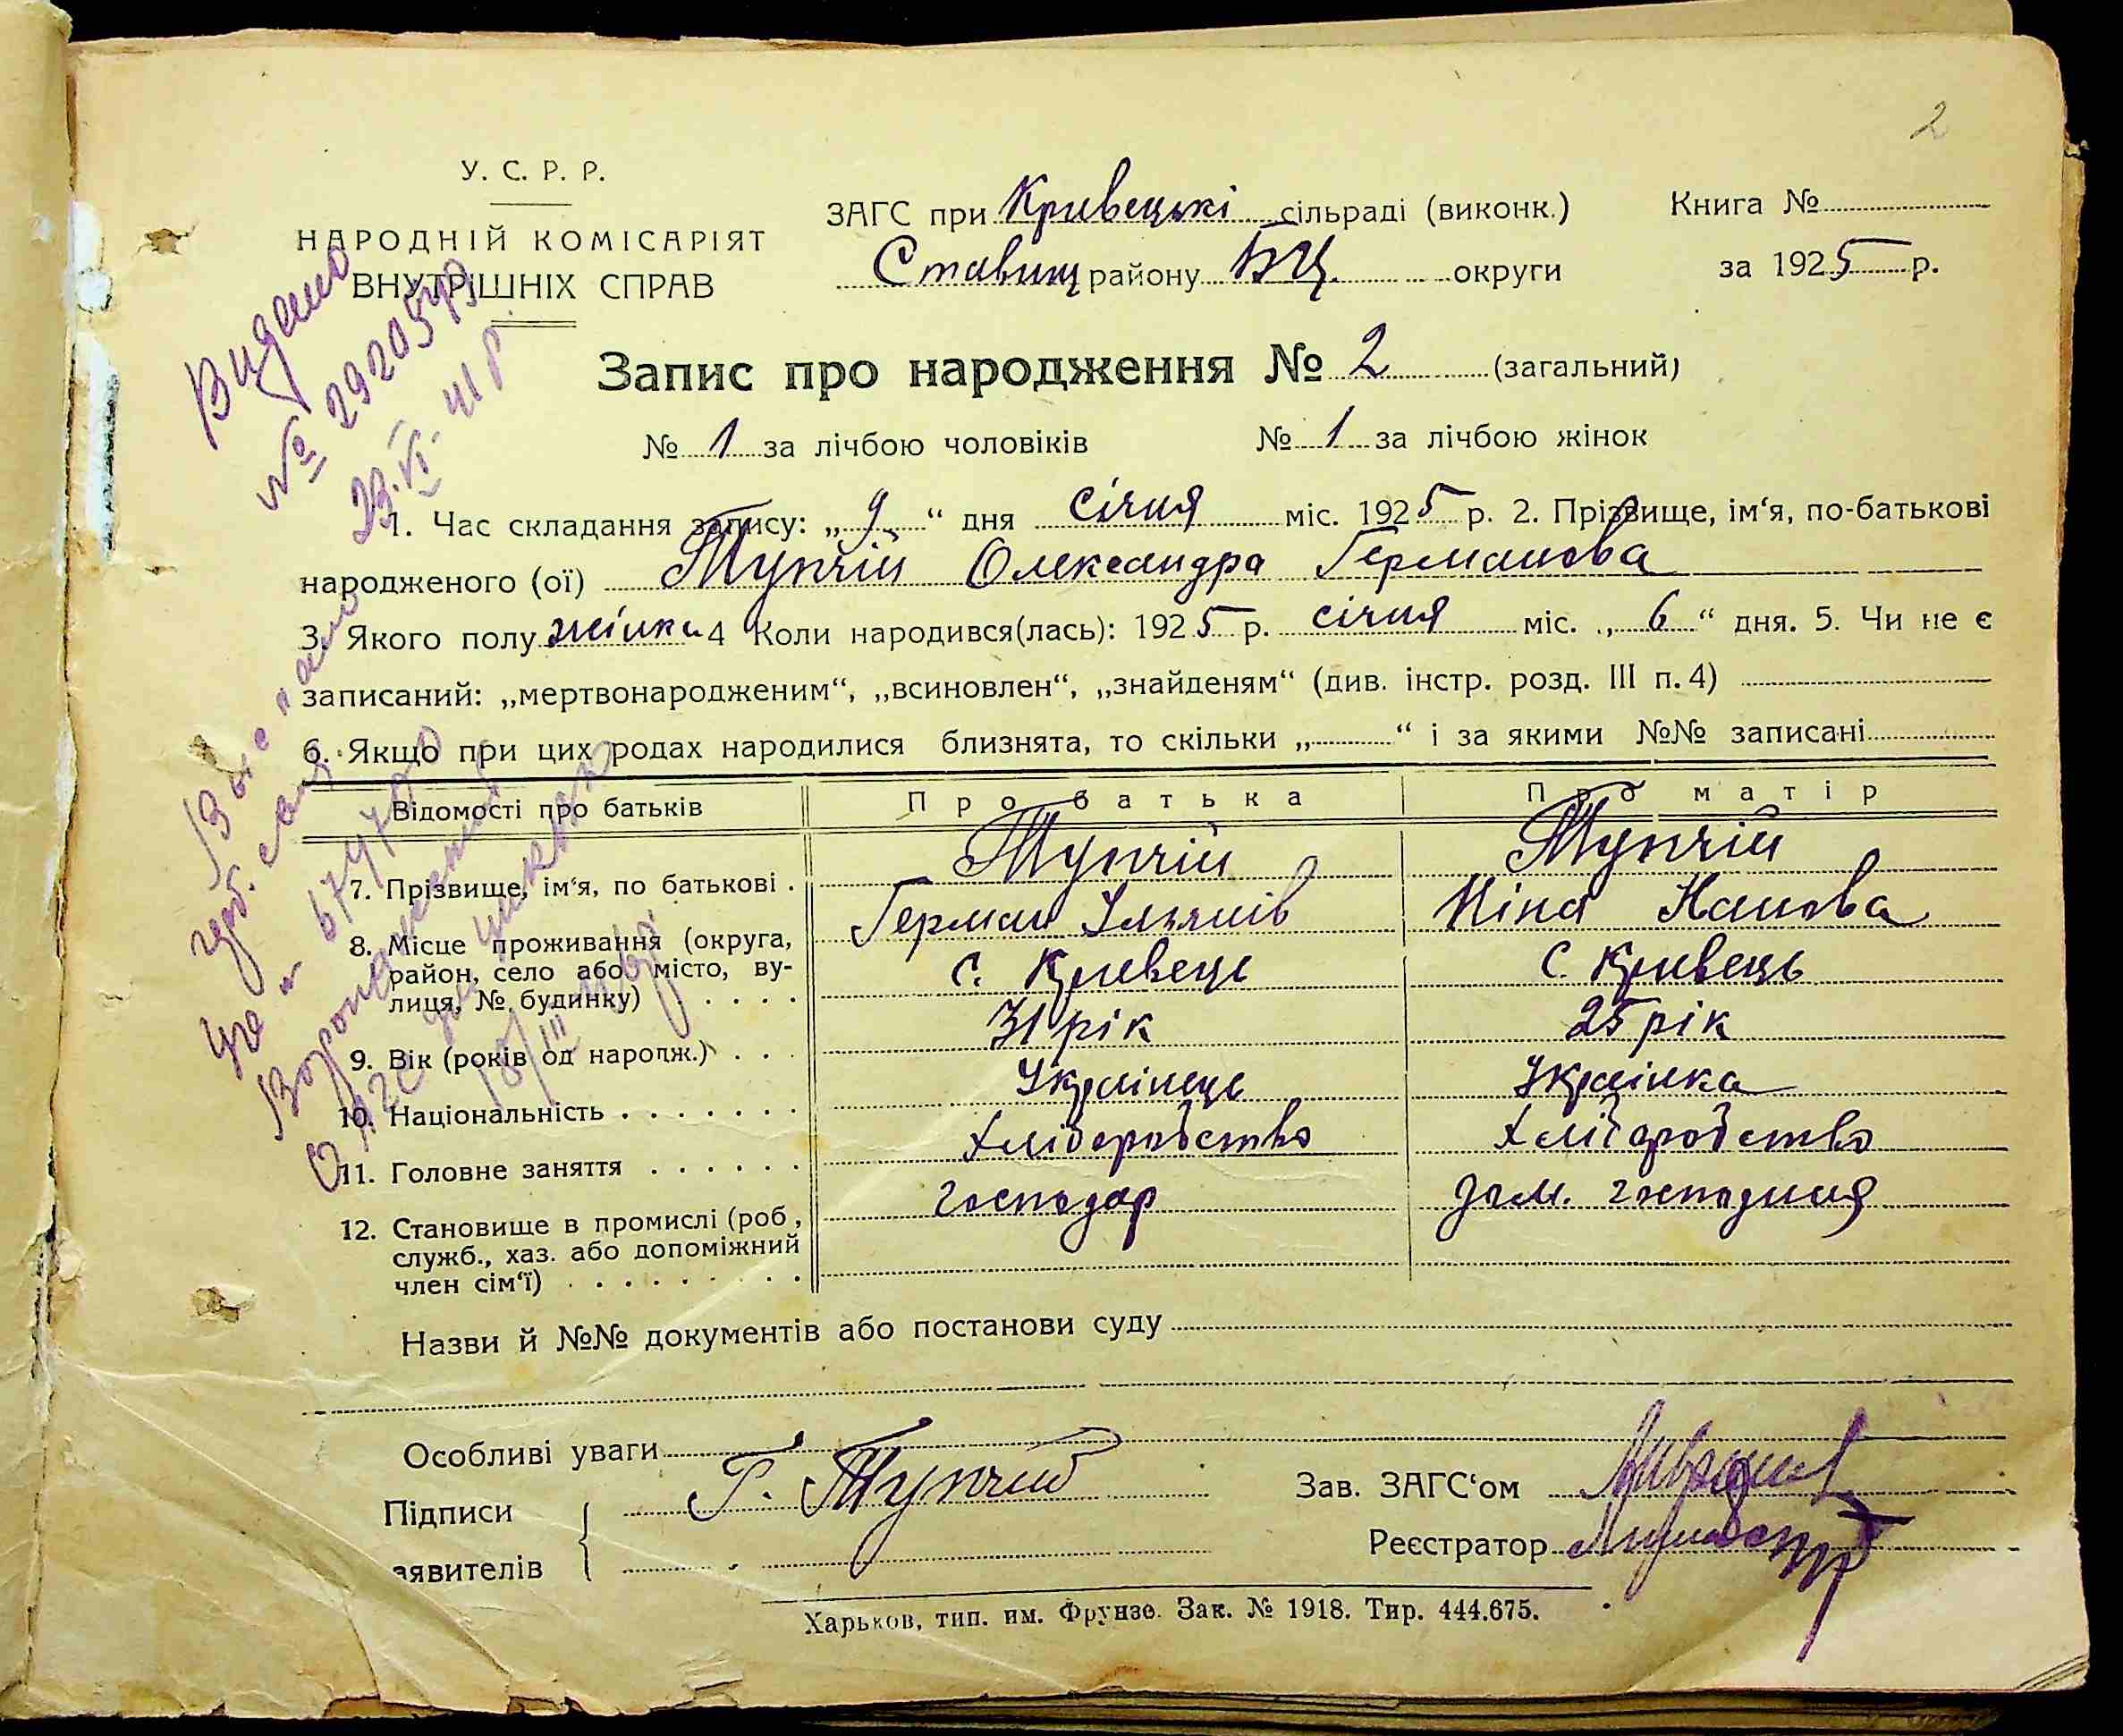 2
У. С. Р. Р.
НАРОДНІЙ КОМІСАРІЯТ
ВНУТРІШНІХ СПРАВ
ЗАГС при Кривецькі сільраді (виконк.)
Ставищ району БЦ. округи
Книга №
за 1925 р.
Запис про народження № 2 (загальний)
№ 1 за лічбою чоловіків № 1 за лічбою жінок
1. Час складання запису: „ 9 “ дня січня міс. 1925 р. 2. Прізвище, ім‘я, по-батькові
народженого (ої) Тупчій Олександра Германова
3. Якого полу жінки 4 Коли народився(лась): 1925 р. січня міс. „ 6 “ дня. 5. Чи не є
записаний: „мертвонародженим“, „всиновлен“, „знайденям“ (див. інстр. розд. III п. 4)
6. Якщо при цих родах народилися близнята, то скільки „ “ і за якими №№ записані
Відомості про батьків Про батька Про матір
7. Прізвище, ім‘я, по батькові . Тупчій Тупчій
Герман Ульянів Ніна Канова
8. Місце проживання (округа, район, село або місто, вулиця, № будинку) . . . . . с. Кривець с. Кривець
9. Вік (років од народж.) . . . 31 рік 25 рік
10. Національність . . . . . . . Українець Українка
11. Головне заняття . . . . . . Хліборобство Хліборобство
12. Становище в промислі (роб., служб., хаз. або допоміжний член сім‘ї) . . . . . . . . . господар дом. господиня
Назви й №№ документів або постанови суду
Особливі уваги
Підписи
заявителів
Г. Тупчий
Зав. ЗАГС‘ом
Реєстратор
Харьков, тип. им. Фрунзе. Зак. № 1918. Тир. 444.675.
Видано
№ 292054
23.VI. 41 р.